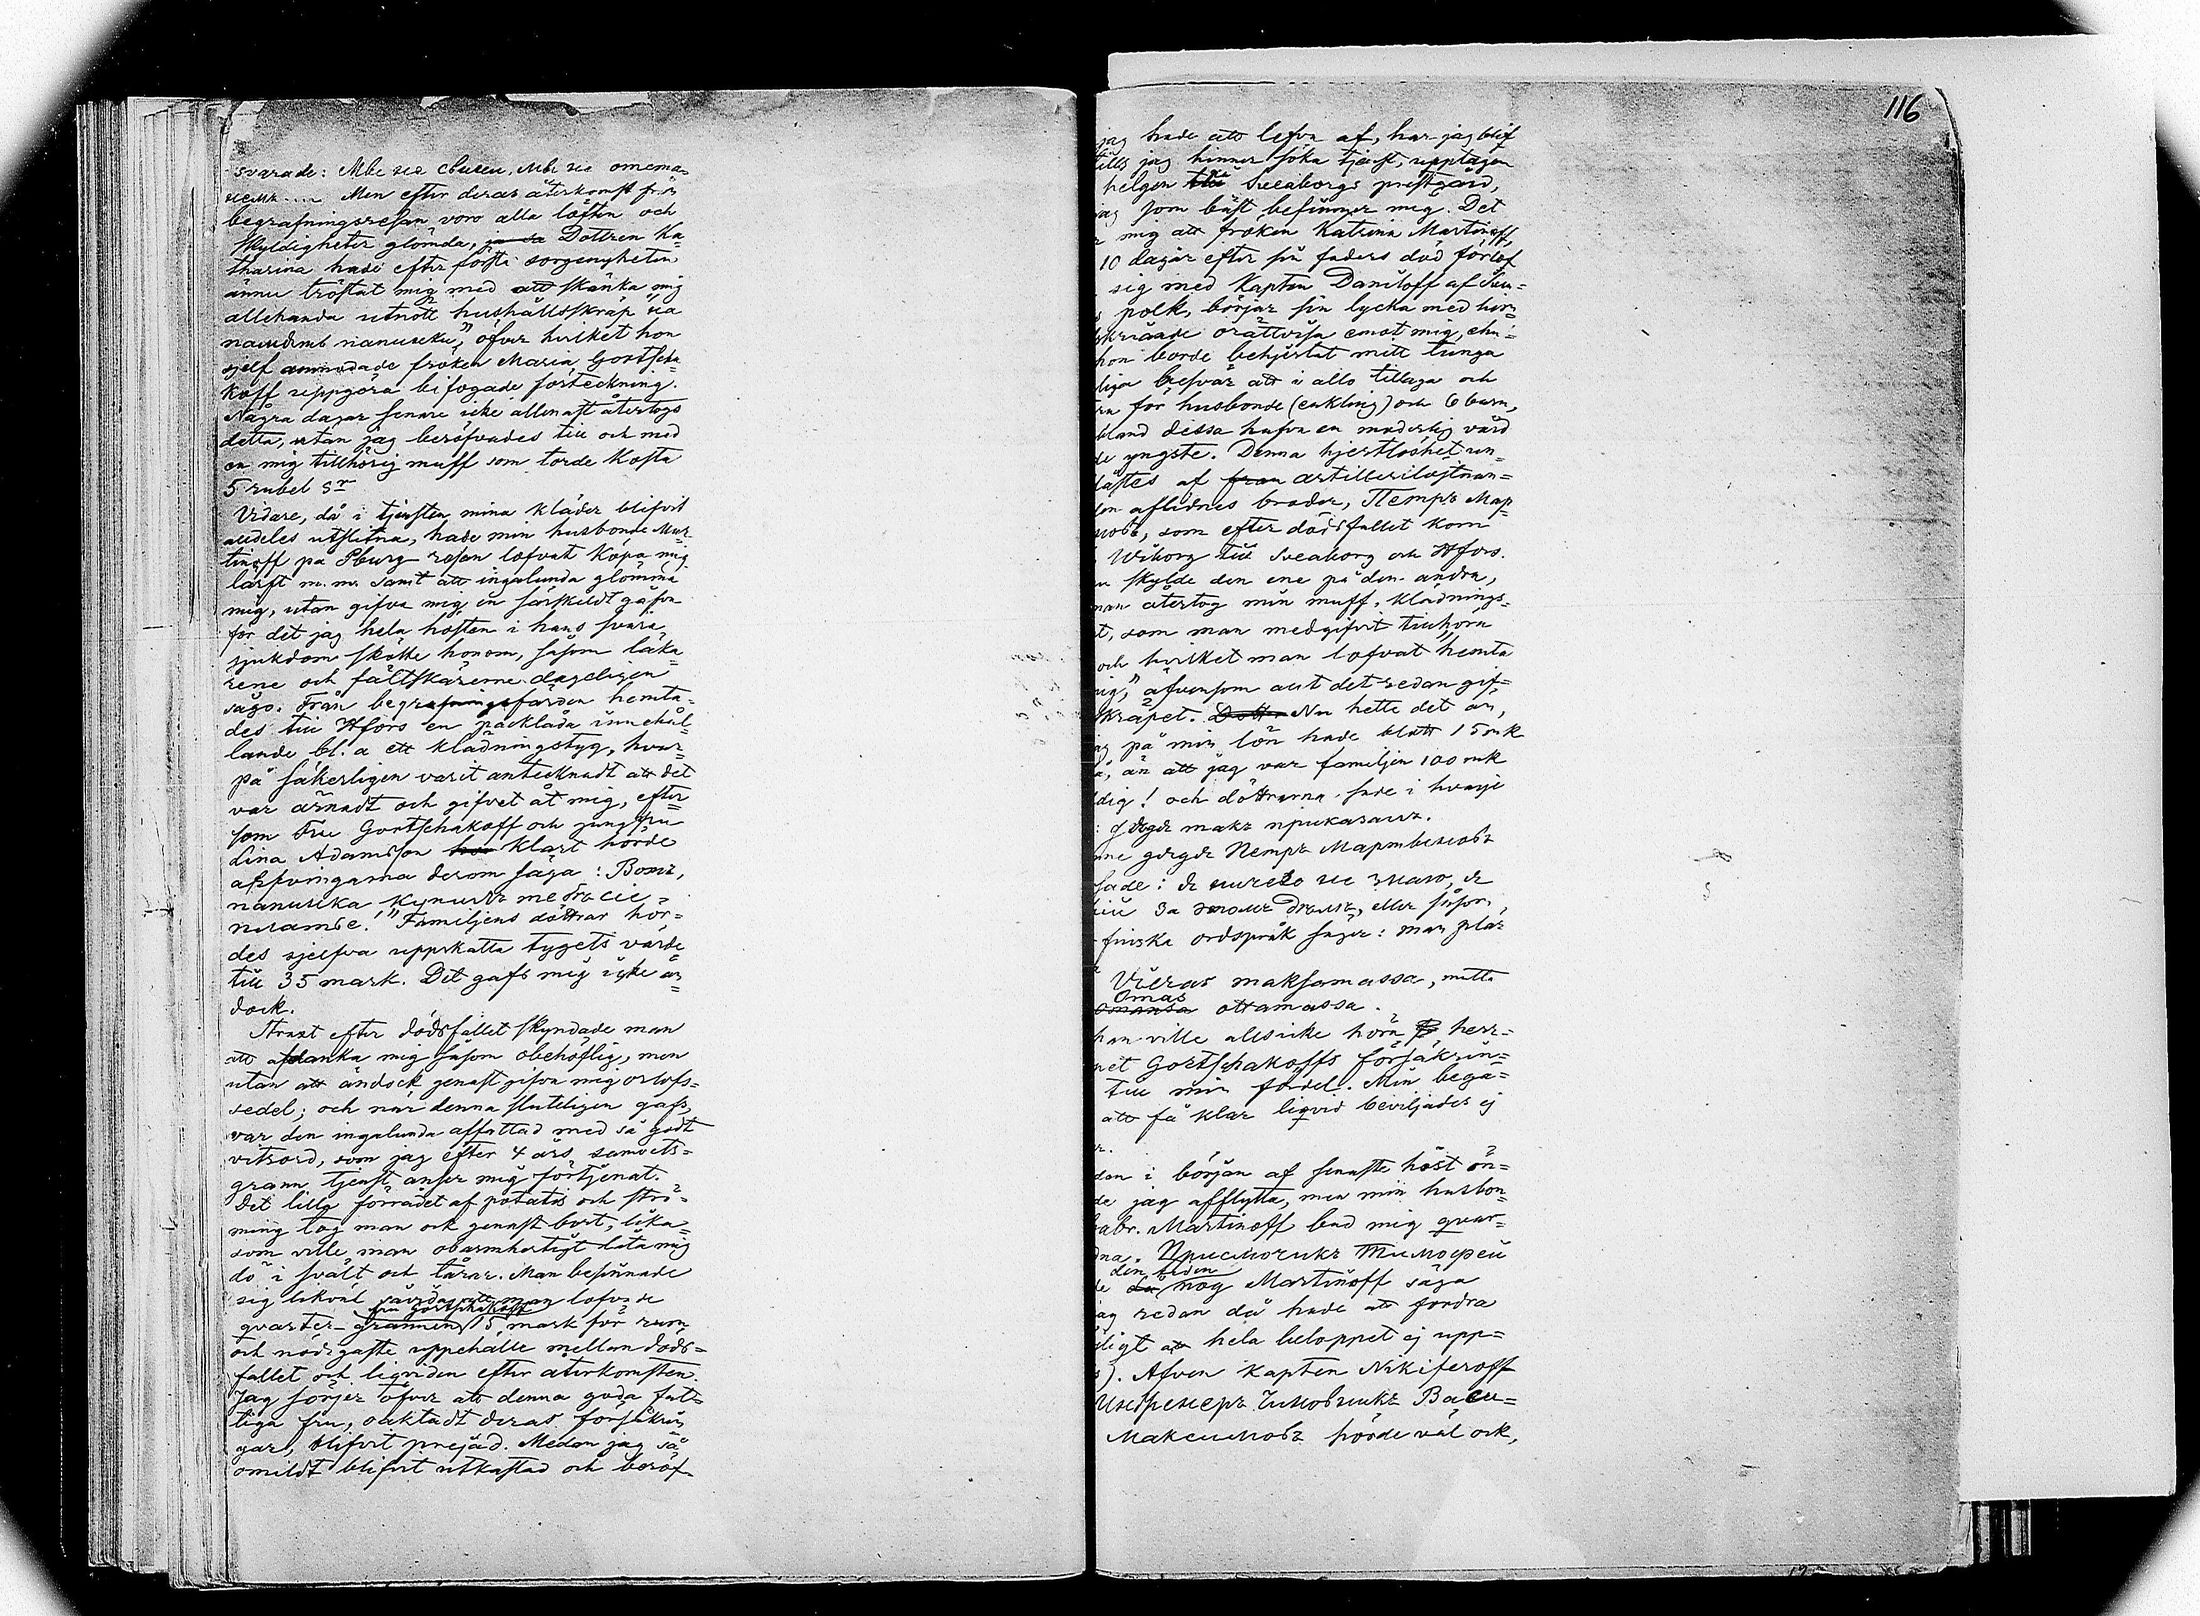 svarade: Мы не свиньи, мы не отста-
немъ .... Men efter deras återkomst från
begrafningsresan voro alla löften och
skyldigheter glömda, ja sa Dottren Ka-
tharina hade efter första sorgenyheten
ännu tröstat mig med att skänka mig
allehanda utnött hushållsskräp "на
память нянюшки", öfver hvilket hon
sjelf anmodade fröken Maria Gortscha
koff uppgöra bifogade förteckning.
Några dagar senare icke allenast återtogs
detta, utan jag beröfvades till och med
en mig tillhörig muff som torde kosta
5 rubel Sr
Vidare, då i tjensten mina kläder blifvit
aldeles utslitna, hade min husbonde Mar
tinoff på Pburg resan lofvat köpa mig
lärft m. m. samt att ingalunda glömma
mig, utan gifva mig en särskildt gåfva
för det jag hela hösten i hans svåra
sjukdom skötte honom, såsom läka-
rene och fältskärerne dageligen
sågo. Från begrafningsfärden hemta-
des till Hfors en packlåda innehål-
lande bl. a ett klädningstyg, hvar-
på säkerligen varit antecknadt att det
var ärnadt och gifvet åt mig, efter
som Fru Gortschakoff och jungfru
Lina Adamsson klart hörde
derom säga: Вотъ,
нянюшка купилъ тебѣ
платье!" Familjens döttrar hör-
des sjelfva uppskatta tygets värde
till 35 mark. Det gafs mig icke än-
dock.
Straxt efter dödsfallet skyndade man
att afdanka mig såsom obehöflig, men
utan att ändock genast gifva mig orlofs-
sedel; och när denna sluteligen gafs,
var den ingalunda affattad med så godt
vitsord, som jag efter 4 års samvets-
grann tjenst anser mig förtjenat.
Det lilla förrådet af potatis och strö-
ming tog man ock genast bort, lika-
som ville man obarmhertigt låta mig
dö i svält och tårar. Man besinnade
sig likväl så att man lofvade
fru Gortschakoff
qvarter-grannen 15 mark för rum
och nödigaste uppehälle mellan döds-
fallet och liqviden efter återkomsten.
Jag sörjer öfver att denna goda fat-
tiga fru, oaktadt deras försäkrin
gar, blifvit prejad. Medan jag så
omildt blifvit utkastad och beröf-
116
jag hade att lefva af, har jag blif
tills jag hinner söka tjenst, upptagen
helgen till Sveaborgs prestgård,
jag som bäst befinner mig. Det
mig att fröken Katrina Martinoff,
10 dagar efter sin faders död förlof
sig med Kapten Daniloff af Sve-
s polk, börjar sin lycka med him
skriande orättvisa emot mig, ehu-
hon borde behjertat mitt tunga
liga besvär att i allo tillaga och
ra för husbonde (enkling) och 6 barn,
bland dessa hafva en moderlig vård
de yngste. Denna hjertlöshet un-
låstes af fran artillerilöjtnan-
ten aflidnes broder, Петръ Мар
новъ, som efter dödsfallet kom
Wiborg till Sveaborg och Hfors.
n skylde den ene på den andra,
man återtog min muff, klädnings-
t, som man medgifvit tillhöra
och hvilket man lofvat "hemta
mig", äfvensom allt det redan gif-
skräpet. Dottr Nu hette det än,
ag på min lön hade blott 15 mk
å, än att jag var familjen 100 mk
dig! och döttrarna sade i hvarje
: дядя такъ приказалъ.
ne дядя Петръ Мартыновъ
sade: я ничего не знаю, я
за этомъ домъ, eller såsom
finska ordspråk säger: man plär
Vieras maksamassa, mutta
Omas
omansa ottamassa.
han ville alls icke höra herr-
et Gortschakoffs försäkrin-
till min fördel. Min begä-
att få klar liqvid beviljades ej
r.
dan i början af senaste höst ön-
de jag afflytta, men min husbon-
abr. Martinoff bad mig qvar-
na. Тимофей
den tiden
de då nog Martinoff säga
ag redan då hade att fordra
digt att hela beloppet ej upp-
s). Äfven Kapten Nikiferoff
Чиновникъ Васи-
Максимовъ hörde väl ock,